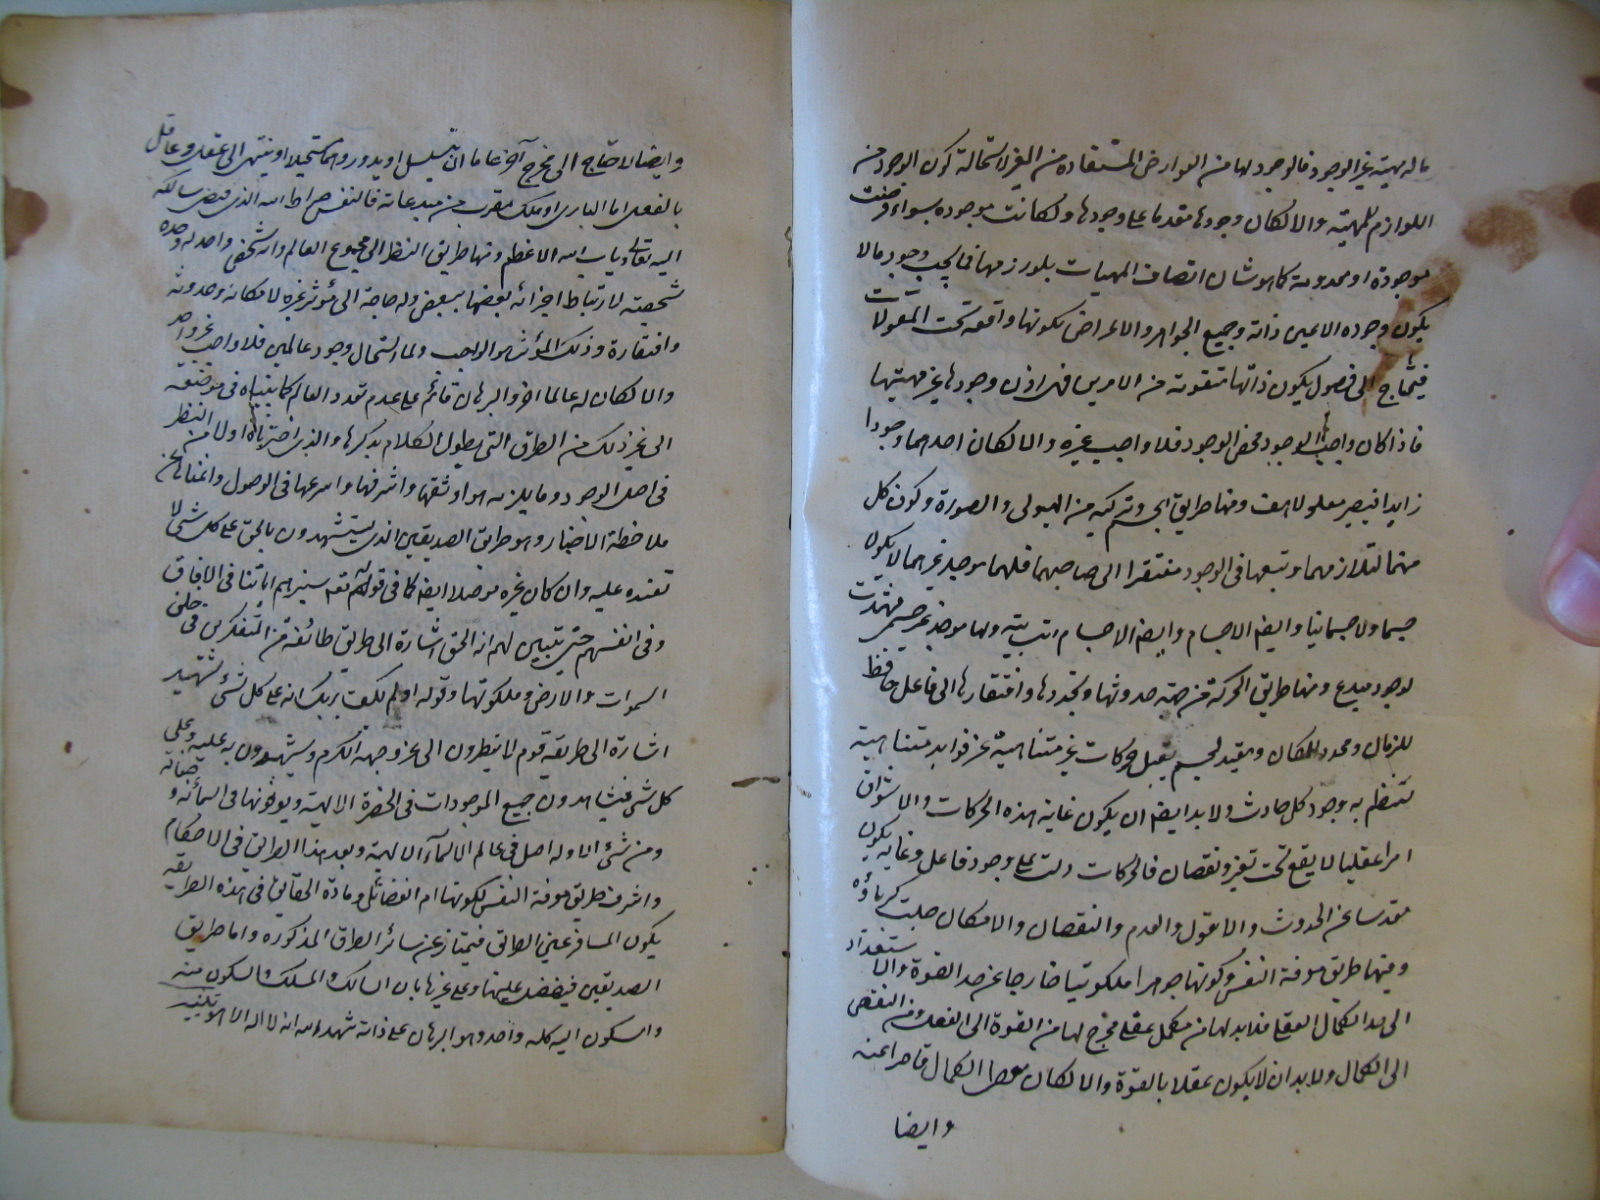 ماله مهية غير الوجود فالوجود لها من العوارض المستفاده من الغير لاستحالة كون الوجود من
اللوازم للمهية والا لكان وجودها متقدما على وجودها ولكانت موجوده سواء فرضت
موجودة او معدومة كما هو شان اتصاف المهيات بلوازمها فيجب وجود مالا
يكون وجوده الا عين ذاته وجميع الجواهر والاعراض لكونها واقعة تحت المقولات
فيحتاج الى فصول يكون ذاتها متقومة من الامرين فهى اذن وجودها غير مهيتها
فاذا كان واجب الوجود محض الوجود فلا واجب غيره والا لكان احدهما وجودا
زايدا فيصير معلولا هف ومنها طريق الجسم وتركبه من الهيولى والصورة وكون كل
منهما لتلازمهما وتبعها فى الوجود مفتقرا الى صاحبهما فلهما موجد غيرهما لا يكون
جسما ولا جسمانيا وايضا الاجسام وايضا الاجسام لها موجد غير جسمى فتهدت
لوجود مبدع ومنها طريق الحركة من جهة حدوثها وتجددها وافتقارها الى فاعل حافظ
للزمان ومحدد للمكان ومفيد لجسم يقبل حركات غير متناهية عن قوابد متناهية
ينتظم به وجود كل حادث ولا بد ايضا ان يكون غاية هذه الحركات والاشواق
امرا عقليا لا يقع تحت تغير ونقصان فالحركات دلت على وجود فاعل وغاية يكون
مقدسا عن الحدوث والافول والعدم والنقصان والامكان جلت كبرياؤه
ومنها طريق معرفة النفس وكونها جوهرا ملكوتيا خارجا عن حد القوة والاستعداد
الى حد الكمال العقلى فلابد لها من مكمل عقلى مخرج لها من القوة الى الفعل ومن النقص
الى الكمال ولابد ان لا يكون عقلا بالقوة والا لكان معطى الكمال قاصرا عنه
وايضا
وايضا لاحتاج الى مخرج آخر فاما ان يتسلسل او يدور وهما مستحيلا او ينتهى الى عقل وعاقل
بالفعل اما البارى او ملك مقرب من مبدعاته فالنفس صراط الله الذى يفضى سالكه
اليه تعالى وباب الله الاعظم ومنها طريق النظر الى مجموع العالم وانه شخص واحد له وحده
شخصية لارتباط اجزائه بعضها ببعض وله حاجة الى مؤثر غيره لامكانه وحدوثه
وافتقاره وذلك المؤثر هو الواجب ولما استحال وجود عالمين فلا واجب غير واحد
والا لكان له عالما اخر والبرهان قائم على عدم تعدد العالم كما بيناه فى موضعه
الى غير ذلك من الطرق التى يطول الكلام بذكرها والذى اخترناه اولا من النظر
فى اصل الوجود وما يلزمه هو اوثقها واشرفها واسرعها فى الوصول واغناها عن
ملاحظة الاغيار وهو طريق الصديقين الذى يستشهدون بالحق على كل شئ لا
بغيره عليه وان كان غيره موصلا ايضا كما فى قوله تعالى سنريهم اياتنا فى الافاق
وفى انفسهم حتى يتبين لهم انه الحق اشارة الى طريق طائفة من المتفكرين فى خلق
السموات والارض وملكوتها وقوله اولم يكف بربك انه على كل شئ شهيد
اشارة الى طريقة قوم لا ينظرون الى غير وجهه الكرم ويشهدون به عليه وعلى
كل شئ فيشاهدون جميع الموجودات فى الحضرة الالهية ويعرفونها فى اسمائه وصفاته
ومن شئ الا وله اصل فى عالم الاسماء الالهية وبعد هذا الطريق فى الاحكام
واشرف طريق معرفة النفس لكونها ام الفضائل ومادة الحقايق فى هذه الطريقة
يكون المسافر عين الطريق فيمتاز عن سائر الطرق المذكوره واما طريق
الصديقين فيفضل عليها وعلى غيرها بان السالك والمسلك والمسلوك منه
والسلوك اليه كله واحد وهو البرهان على ذاته شهد الله انه لا اله الا هو